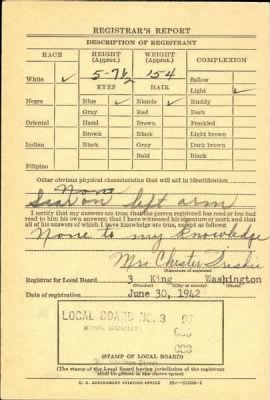 REGISTRAR'S REPORT
DESCRIPTION OF REGISTRANT
RACE HEIGHT (Approx.) WEIGHT (Approx.) COMPLEXION
5-7½ 154
White ✓ EYES HAIR Sallow
Light ✓
Negro Blue ✓ Blonde ✓ Ruddy
Gray Red Dark
Oriental Hazel Brown Freckled
Brown Black Light brown
Indian Black Gray Dark brown
Bald Black
Filipino
Other obvious physical characteristic that will aid in identification
None
Scar on left arm
I certify that my answers are true; that the person registered has read or has had
read to him his own answers; that I have witnessed his signature or mark and that
all of his answers of which I have knowledge are true, except as follows:
None to my knowledge
Mrs Chester
(Signature of registrar)
Registrar for Local Board 3 King Washington
(Number) (City or county) (State)
Date of registration June 30, 1942
LOCAL BOARD NO. 3 97
KING COUNTY 033
003
(STAMP OF LOCAL BOARD)
(The stamp of the Local Board having jurisdiction of the registrant
shall be placed in the above space)
U. S. GOVERNMENT PRINTING OFFICE